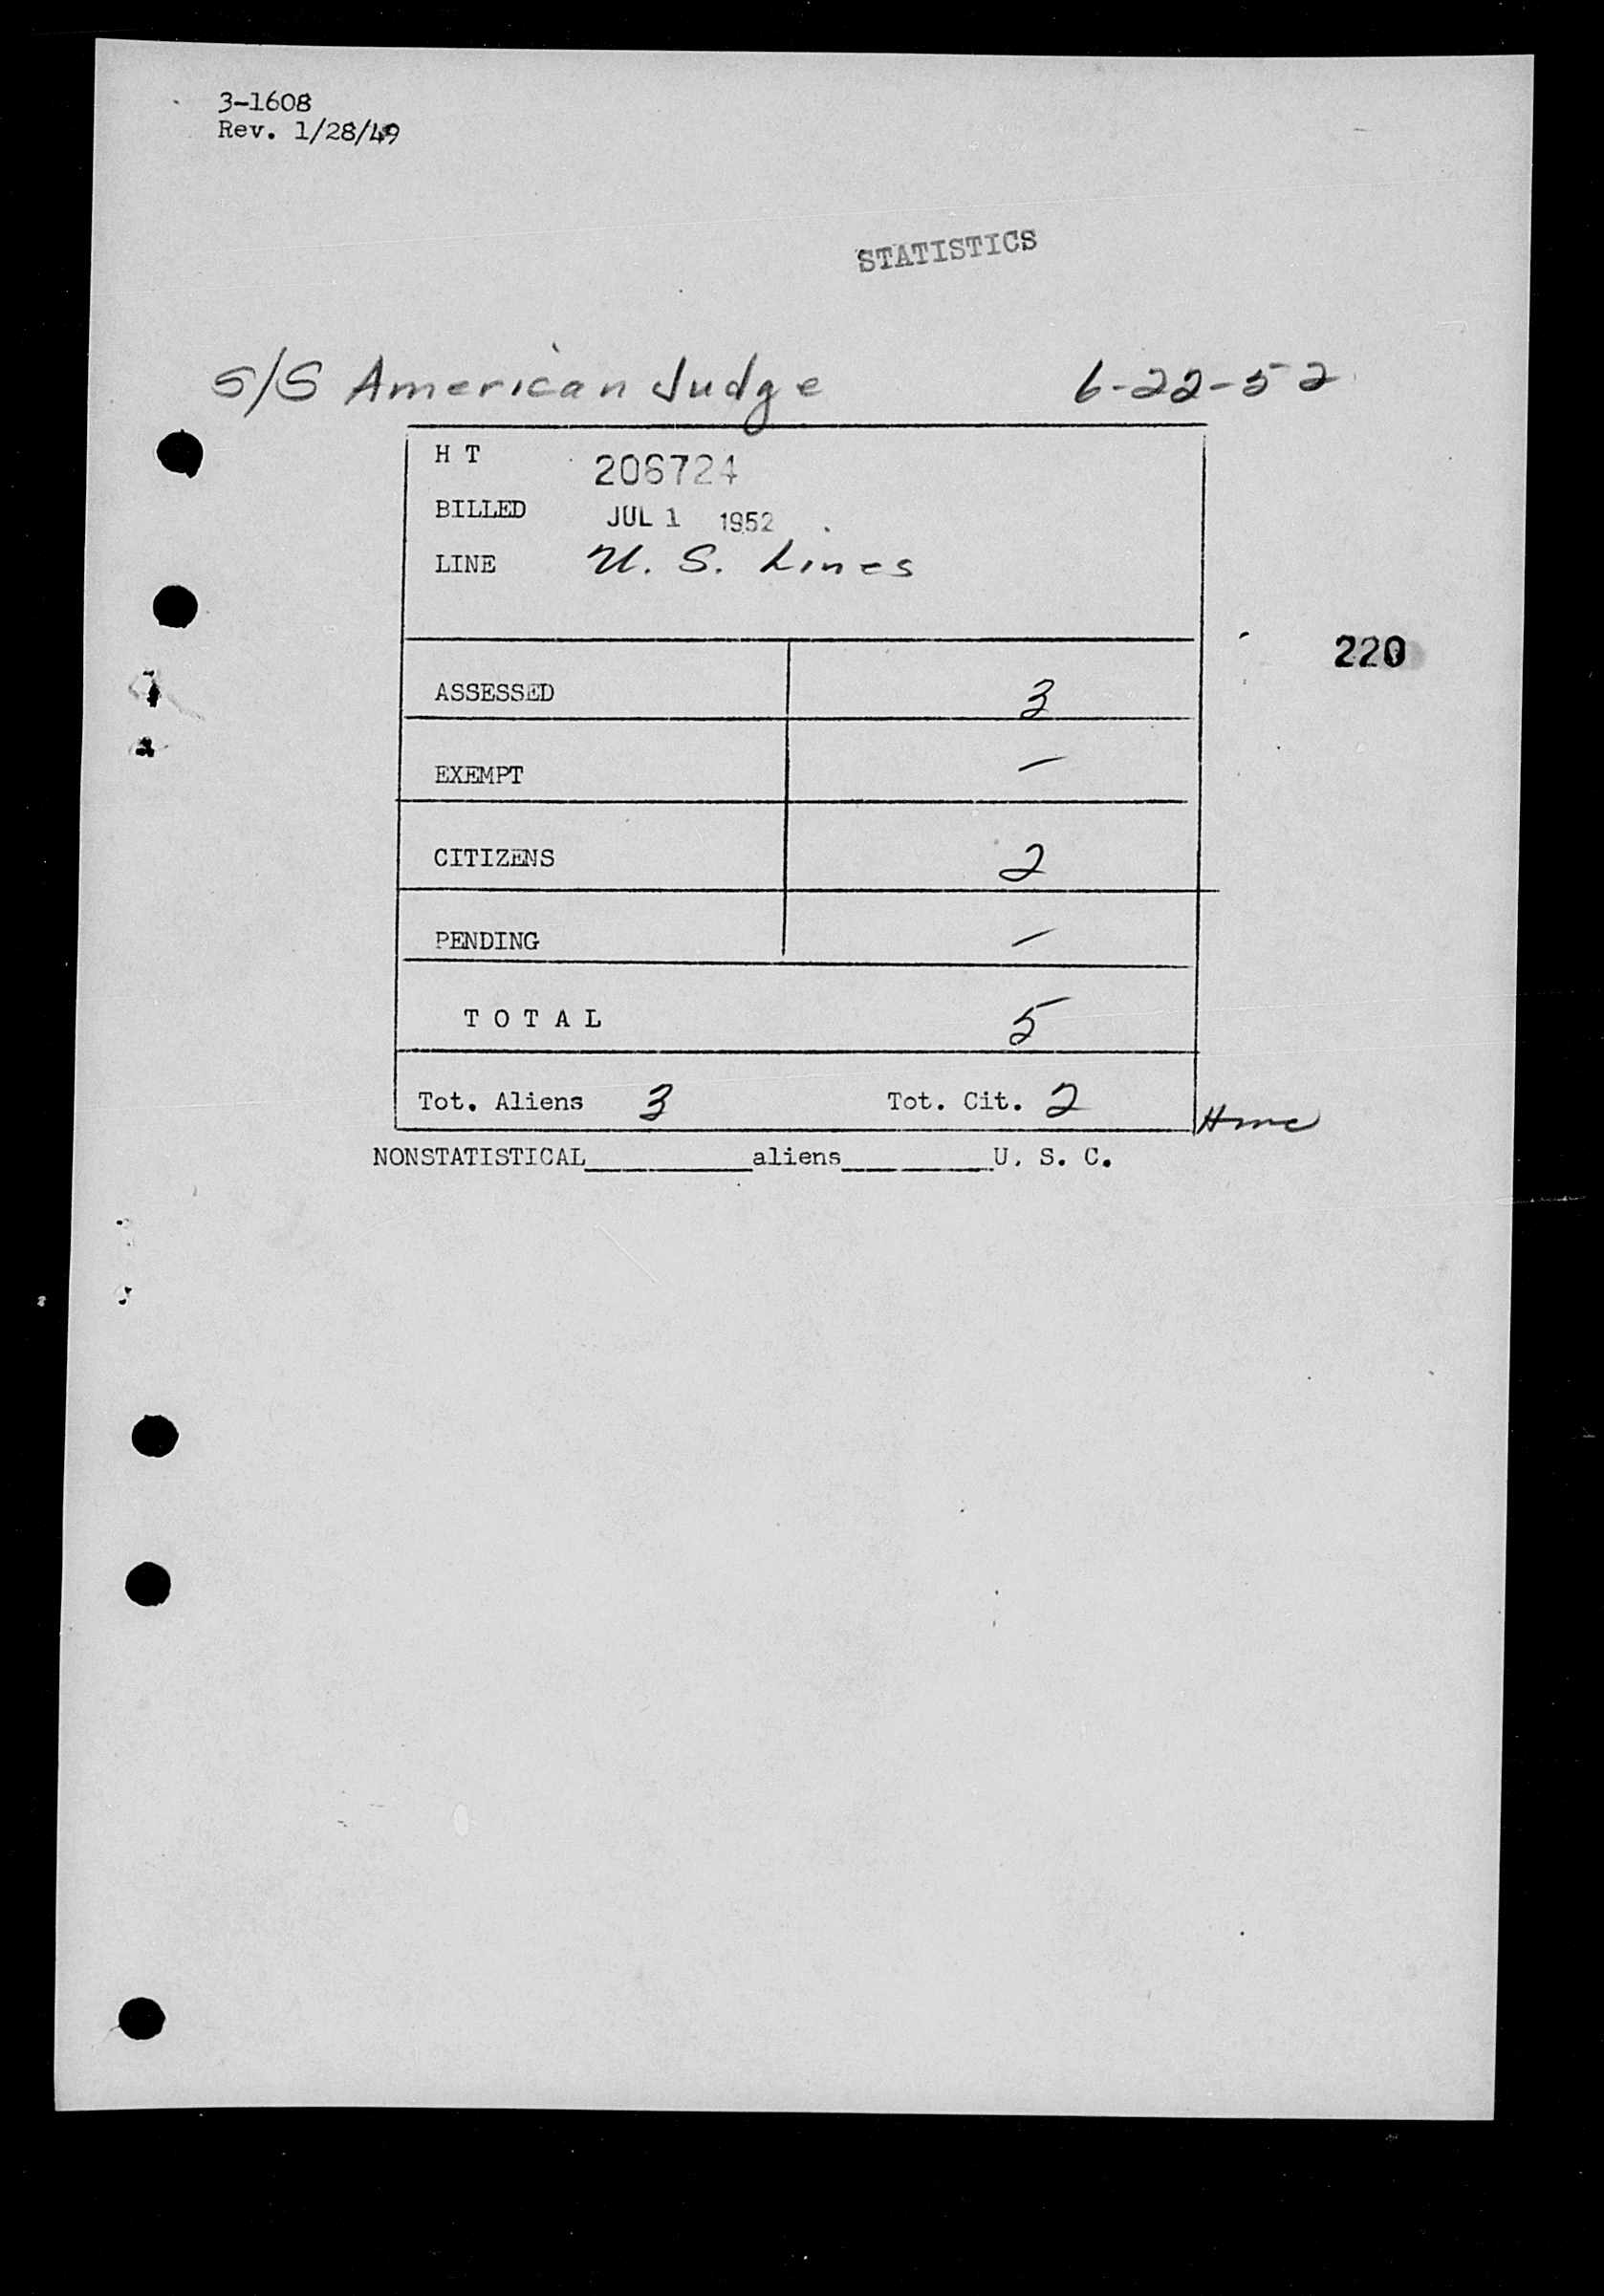 3-1608
Rev. 1/28/49
STATISTICS
S/S American Judge 6-22-52
H T 206724
BILLED JUL 1 1952
LINE U. S. Lines
220
ASSESSED 3
EXEMPT —
CITIZENS 2
PENDING —
T O T A L 5
Tot. Aliens 3 Tot. Cit. 2
NONSTATISTICAL__________aliens_________U. S. C.